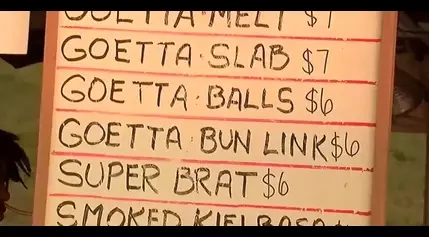 GOETTA·MELT $7
GOETTA·SLAB $7
GOETTA·BALLS $6
GOETTA·BUN LINK $6
SUPER BRAT $6
SMOKED KIELBASA